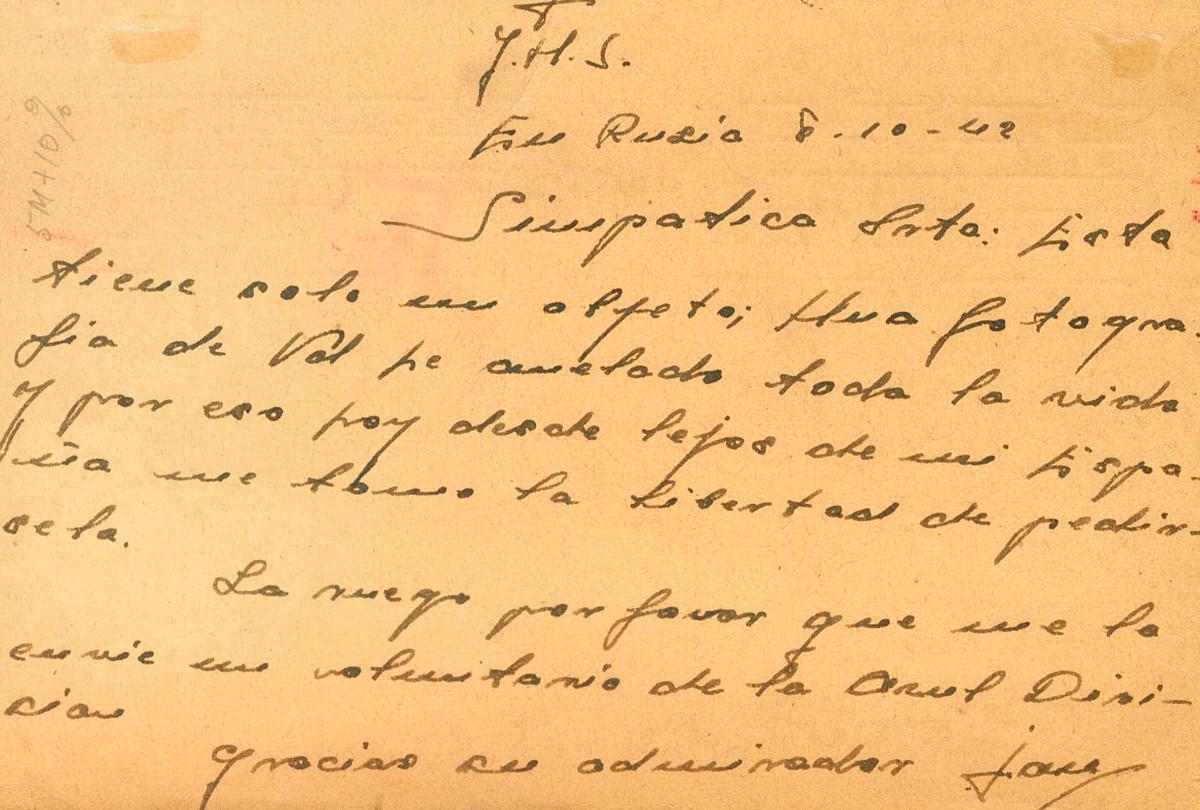 J.H.S.
En Rusia 8-10-42
Simpatica Srta: Esta
tiene solo un objeto; Una fotogra-
fia de Vd he anelado toda la vida
y por eso hoy desde lejos de mi Espa-
ña me tomo la libertad de pedir-
sela.
La ruego por favor que me la
envie un voluntario de la Azul Divi-
cion
gracias su admirador